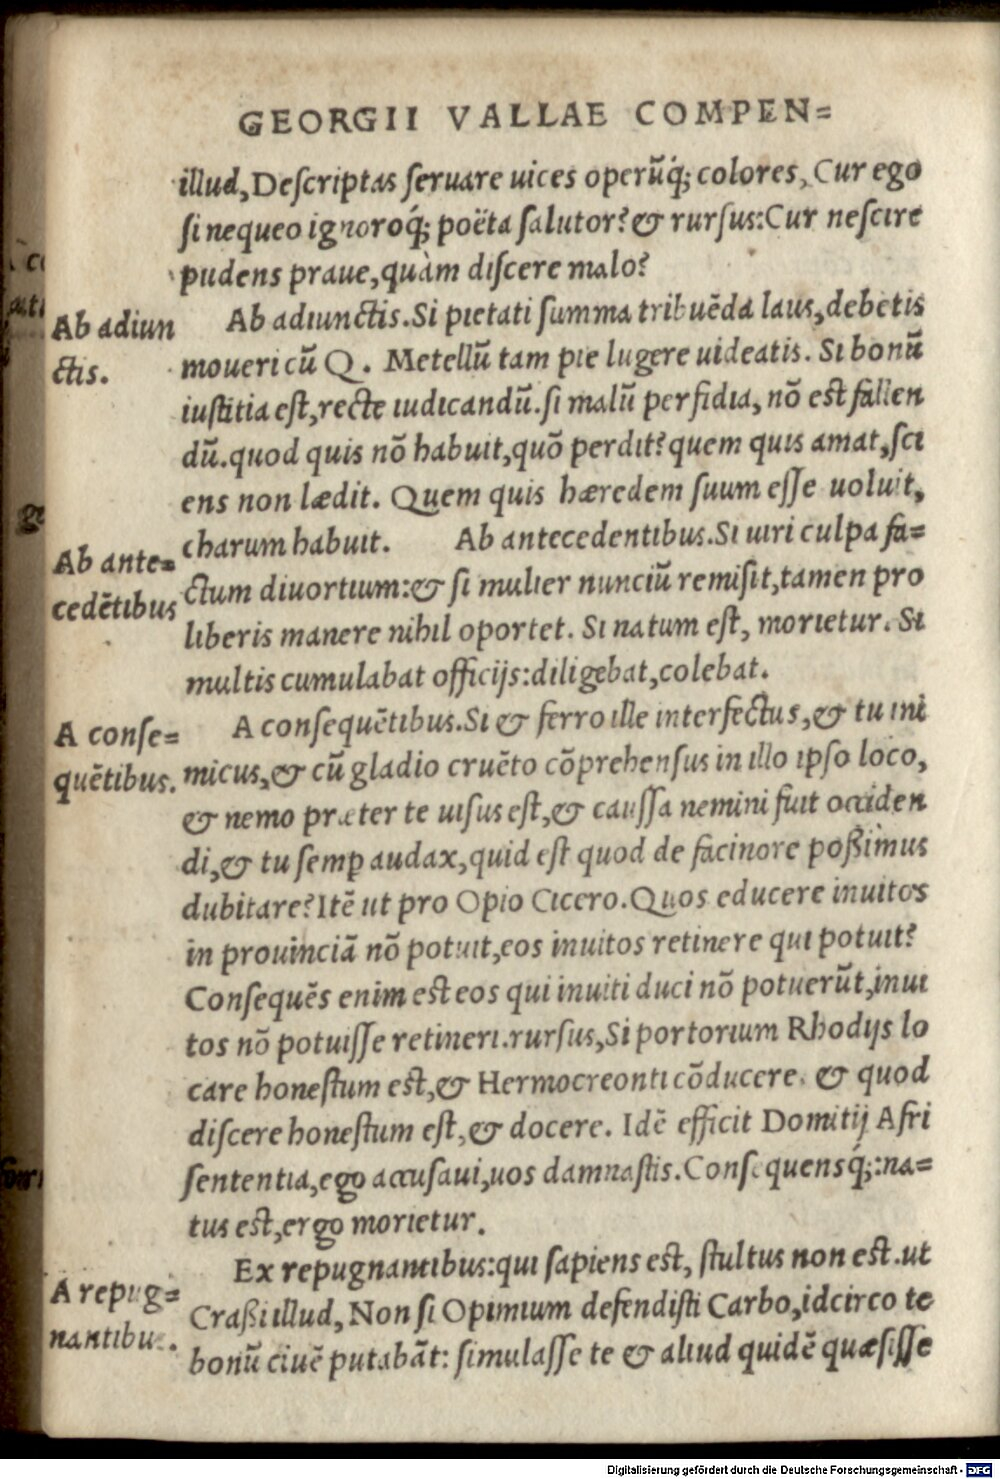 GEORGII VALLAE COMPEN=
illud, Deſcriptas ſeruare uices operũq́; colores, Cur ego
ſi nequeo ignoroq́; poëta ſalutor? & rurſus: Cur neſcire
pudens praue, quàm diſcere malo?
Ab adiun
ctis.
Ab adiunctis. Si pietati ſumma tribuẽda laus, debetis
moueri cũ Q. Metellũ tam pie lugere uideatis. Si bonũ
iuſtitia eſt, recte iudicandũ. ſi malũ perfidia, nõ eſt fallen
dũ. quod quis nõ habuit, quõ perdit? quem quis amat, ſci
ens non lædit. Quem quis hæredem ſuum eſſe uoluit,
charum habuit. Ab antecedentibus. Si uiri culpa fa=
Ab ante=
cedẽtibus
ctum diuortium: & ſi mulier nunciũ remiſit, tamen pro
liberis manere nihil oportet. Si natum eſt, morietur. Si
multis cumulabat officijs: diligebat, colebat.
A conſe=
quẽtibus.
A conſequẽtibus. Si & ferro ille interfectus, & tu ini
micus, & cũ gladio cruẽto cõprehenſus in illo ipſo loco,
& nemo præter te uiſus eſt, & cauſſa nemini fuit occiden
di, & tu ſemꝑ audax, quid eſt quod de facinore poßimus
dubitare? Itẽ ut pro Opio Cicero. Quos educere inuitos
in prouinciã nõ potuit, eos inuitos retinere qui potuit?
Conſequẽs enim eſt eos qui inuiti duci nõ potuerũt, inui
tos nõ potuiſſe retineri. rurſus, Si portorium Rhodijs lo
care honeſtum eſt, & Hermocreonti cõducere. & quod
diſcere honeſtum eſt, & docere. Idẽ efficit Domitij Afri
ſententia, ego accuſaui, uos damnaſtis. Conſequensq́;: na=
tus eſt, ergo morietur.
A repug=
nantibus.
Ex repugnantibus: qui ſapiens eſt, ſtultus non eſt. ut
Craßi illud, Non ſi Opimium defendiſti Carbo, idcirco te
bonũ ciuẽ putabãt: ſimulaſſe te & aliud quidẽ quæſiſſe
Digitalisierung gefördert durch die Deutsche Forschungsgemeinschaft - DFG